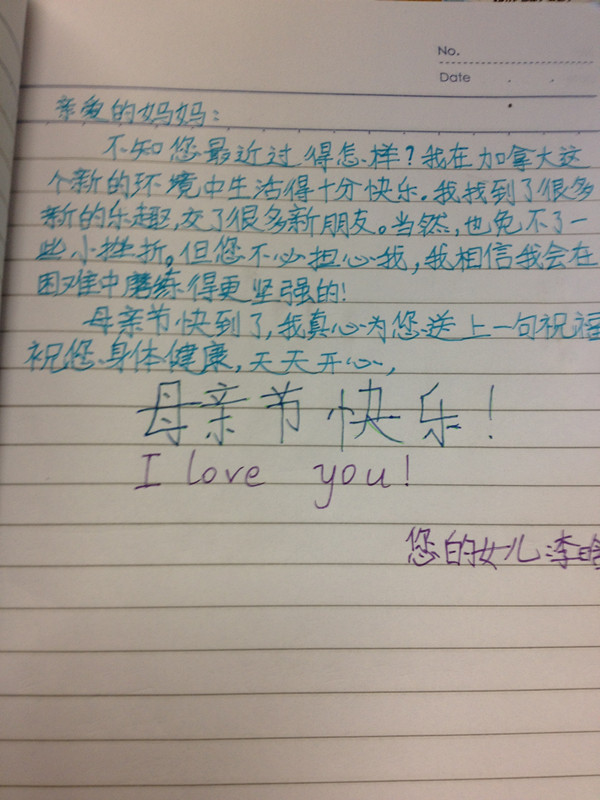 No.
Date
亲爱的妈妈：
不知您最近过得怎样？我在加拿大这
个新的环境中生活得十分快乐。我找到了很多
新的乐趣，交了很多新朋友。当然，也免不了一
些小挫折。但您不必担心我，我相信我会在
困难中磨练得更坚强的！
母亲节快到了，我真心为您送上一句祝福
祝您身体健康，天天开心，
母亲节快乐！
I love you!
您的女儿李晗